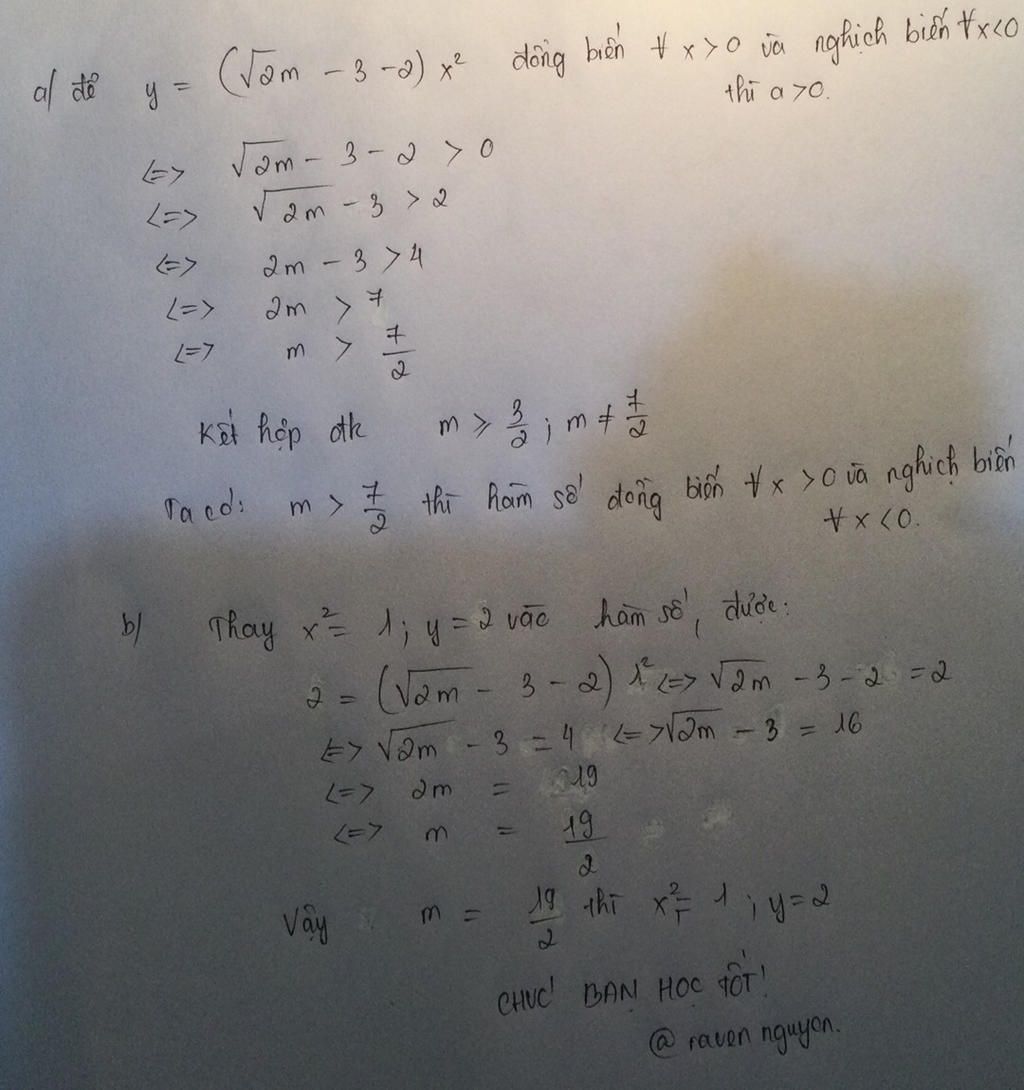 a/ để y = (√2m - 3 - 2) x² đồng biến ∀ x > 0 và nghịch biến ∀x<0
thì a >0.
<=> √2m - 3 - 2 > 0
<=> √2m - 3 > 2
<=> 2m - 3 > 4
<=> 2m > 7
<=> m > 7/2
Kết hợp đk m ≥ 3/2 ; m ≠ 7/2
Ta có: m > 7/2 thì hàm số đồng biến ∀ x > 0 và nghịch biến
∀ x < 0.
b/ Thay x² = 1 ; y = 2 vào hàm số, được:
2 = (√2m - 3 - 2) 1² <=> √2m - 3 - 2 = 2
<=> √2m - 3 = 4 <=> √2m - 3 = 16
<=> 2m = 19
<=> m = 19/2
Vậy m = 19/2 thì x² = 1 ; y = 2
CHÚC BẠN HỌC TỐT!
@ raven nguyen.